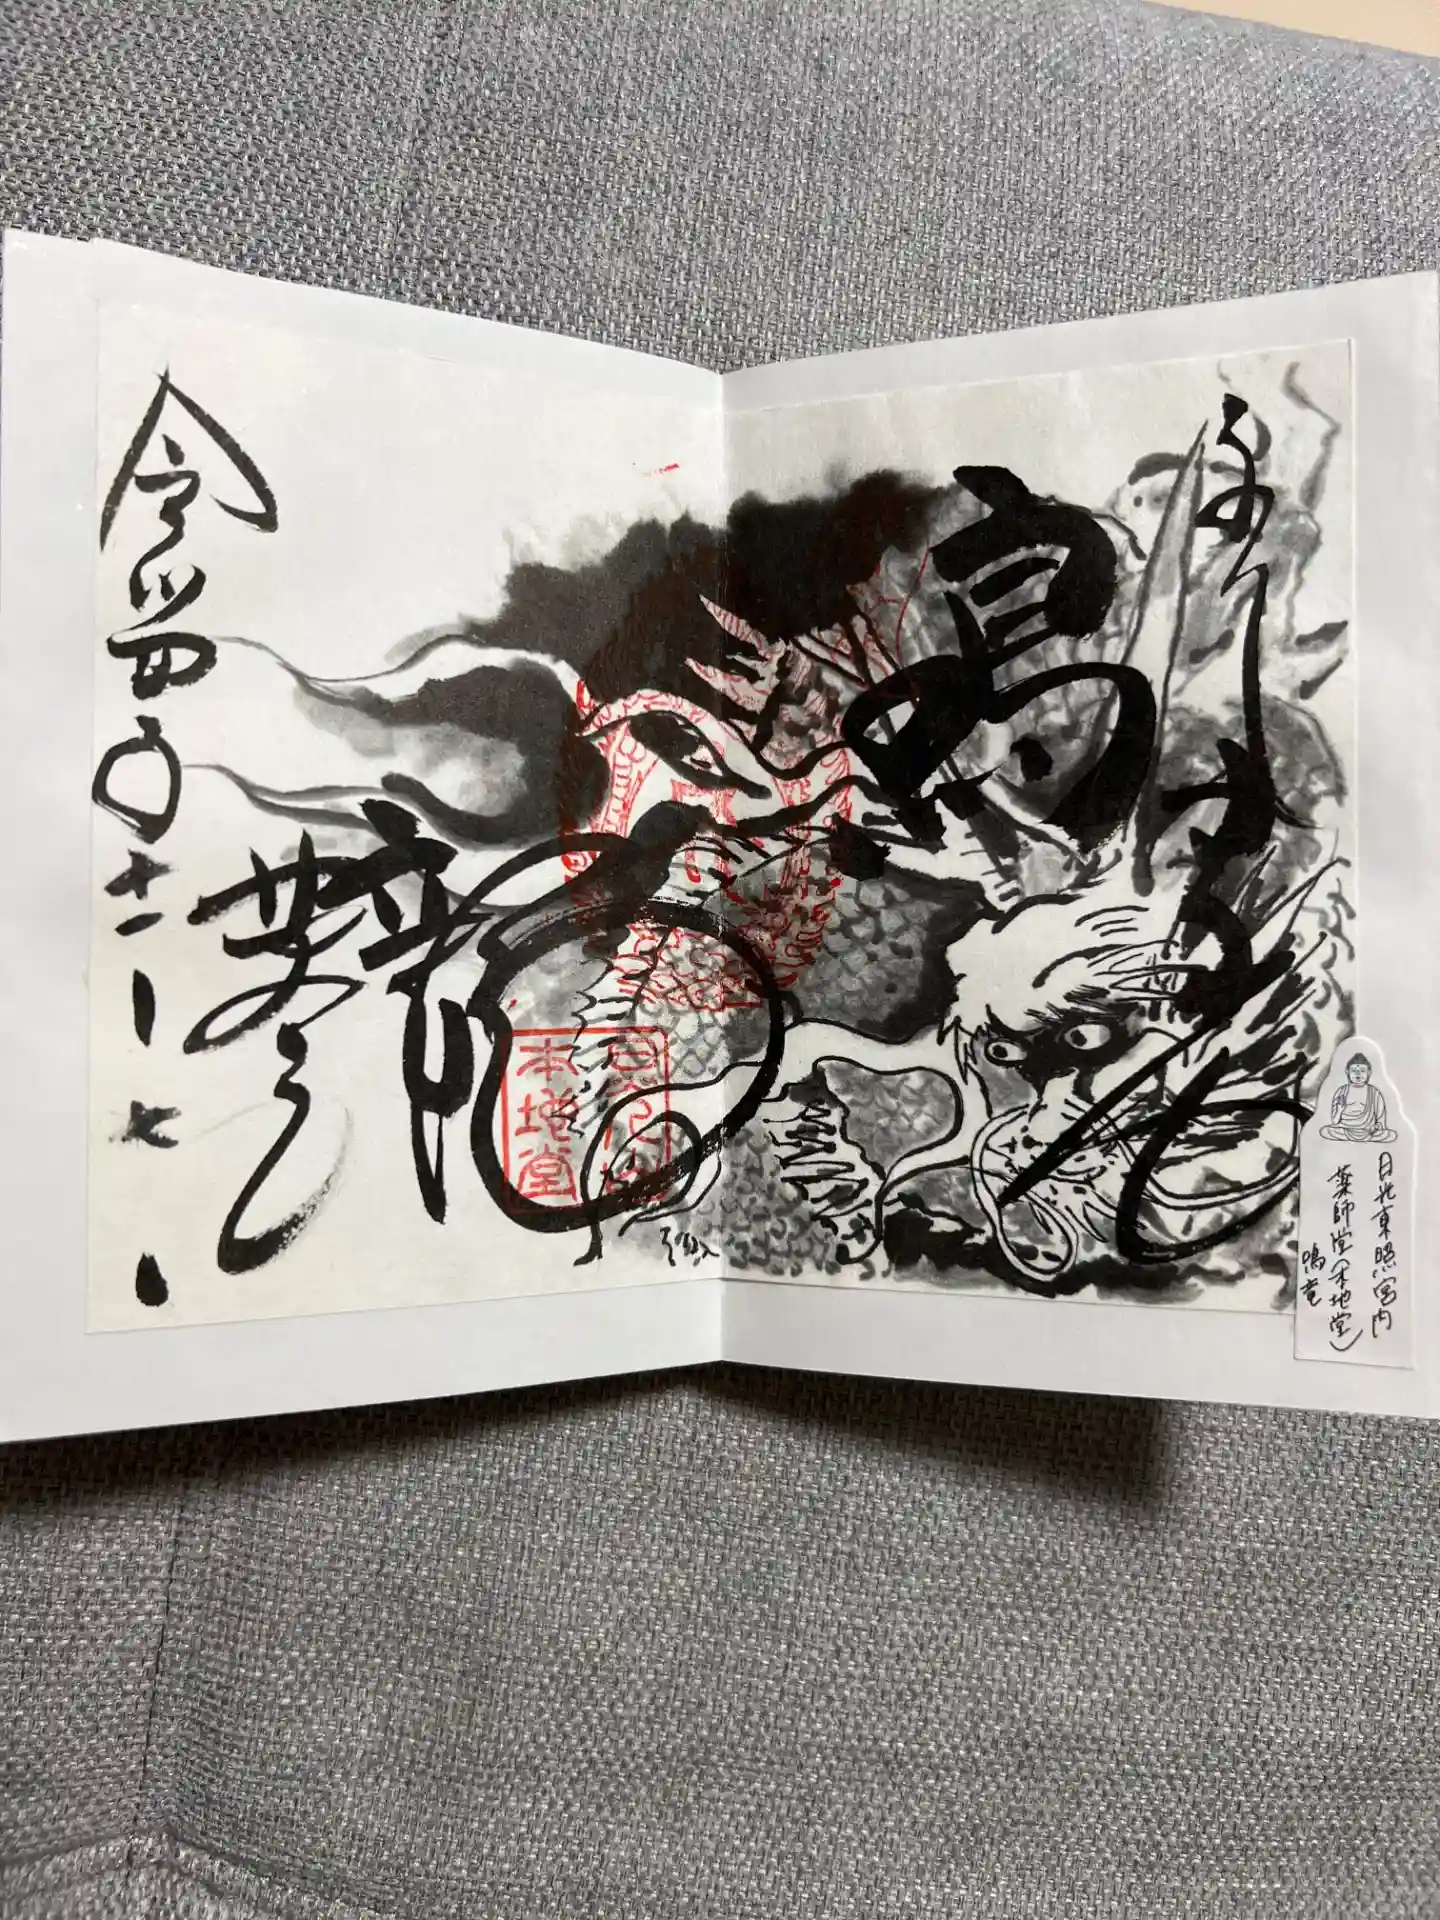 鳴龍
令和四年十一月七日
日光山
本地堂
日光東照宮内
薬師堂(本地堂)
鳴竜